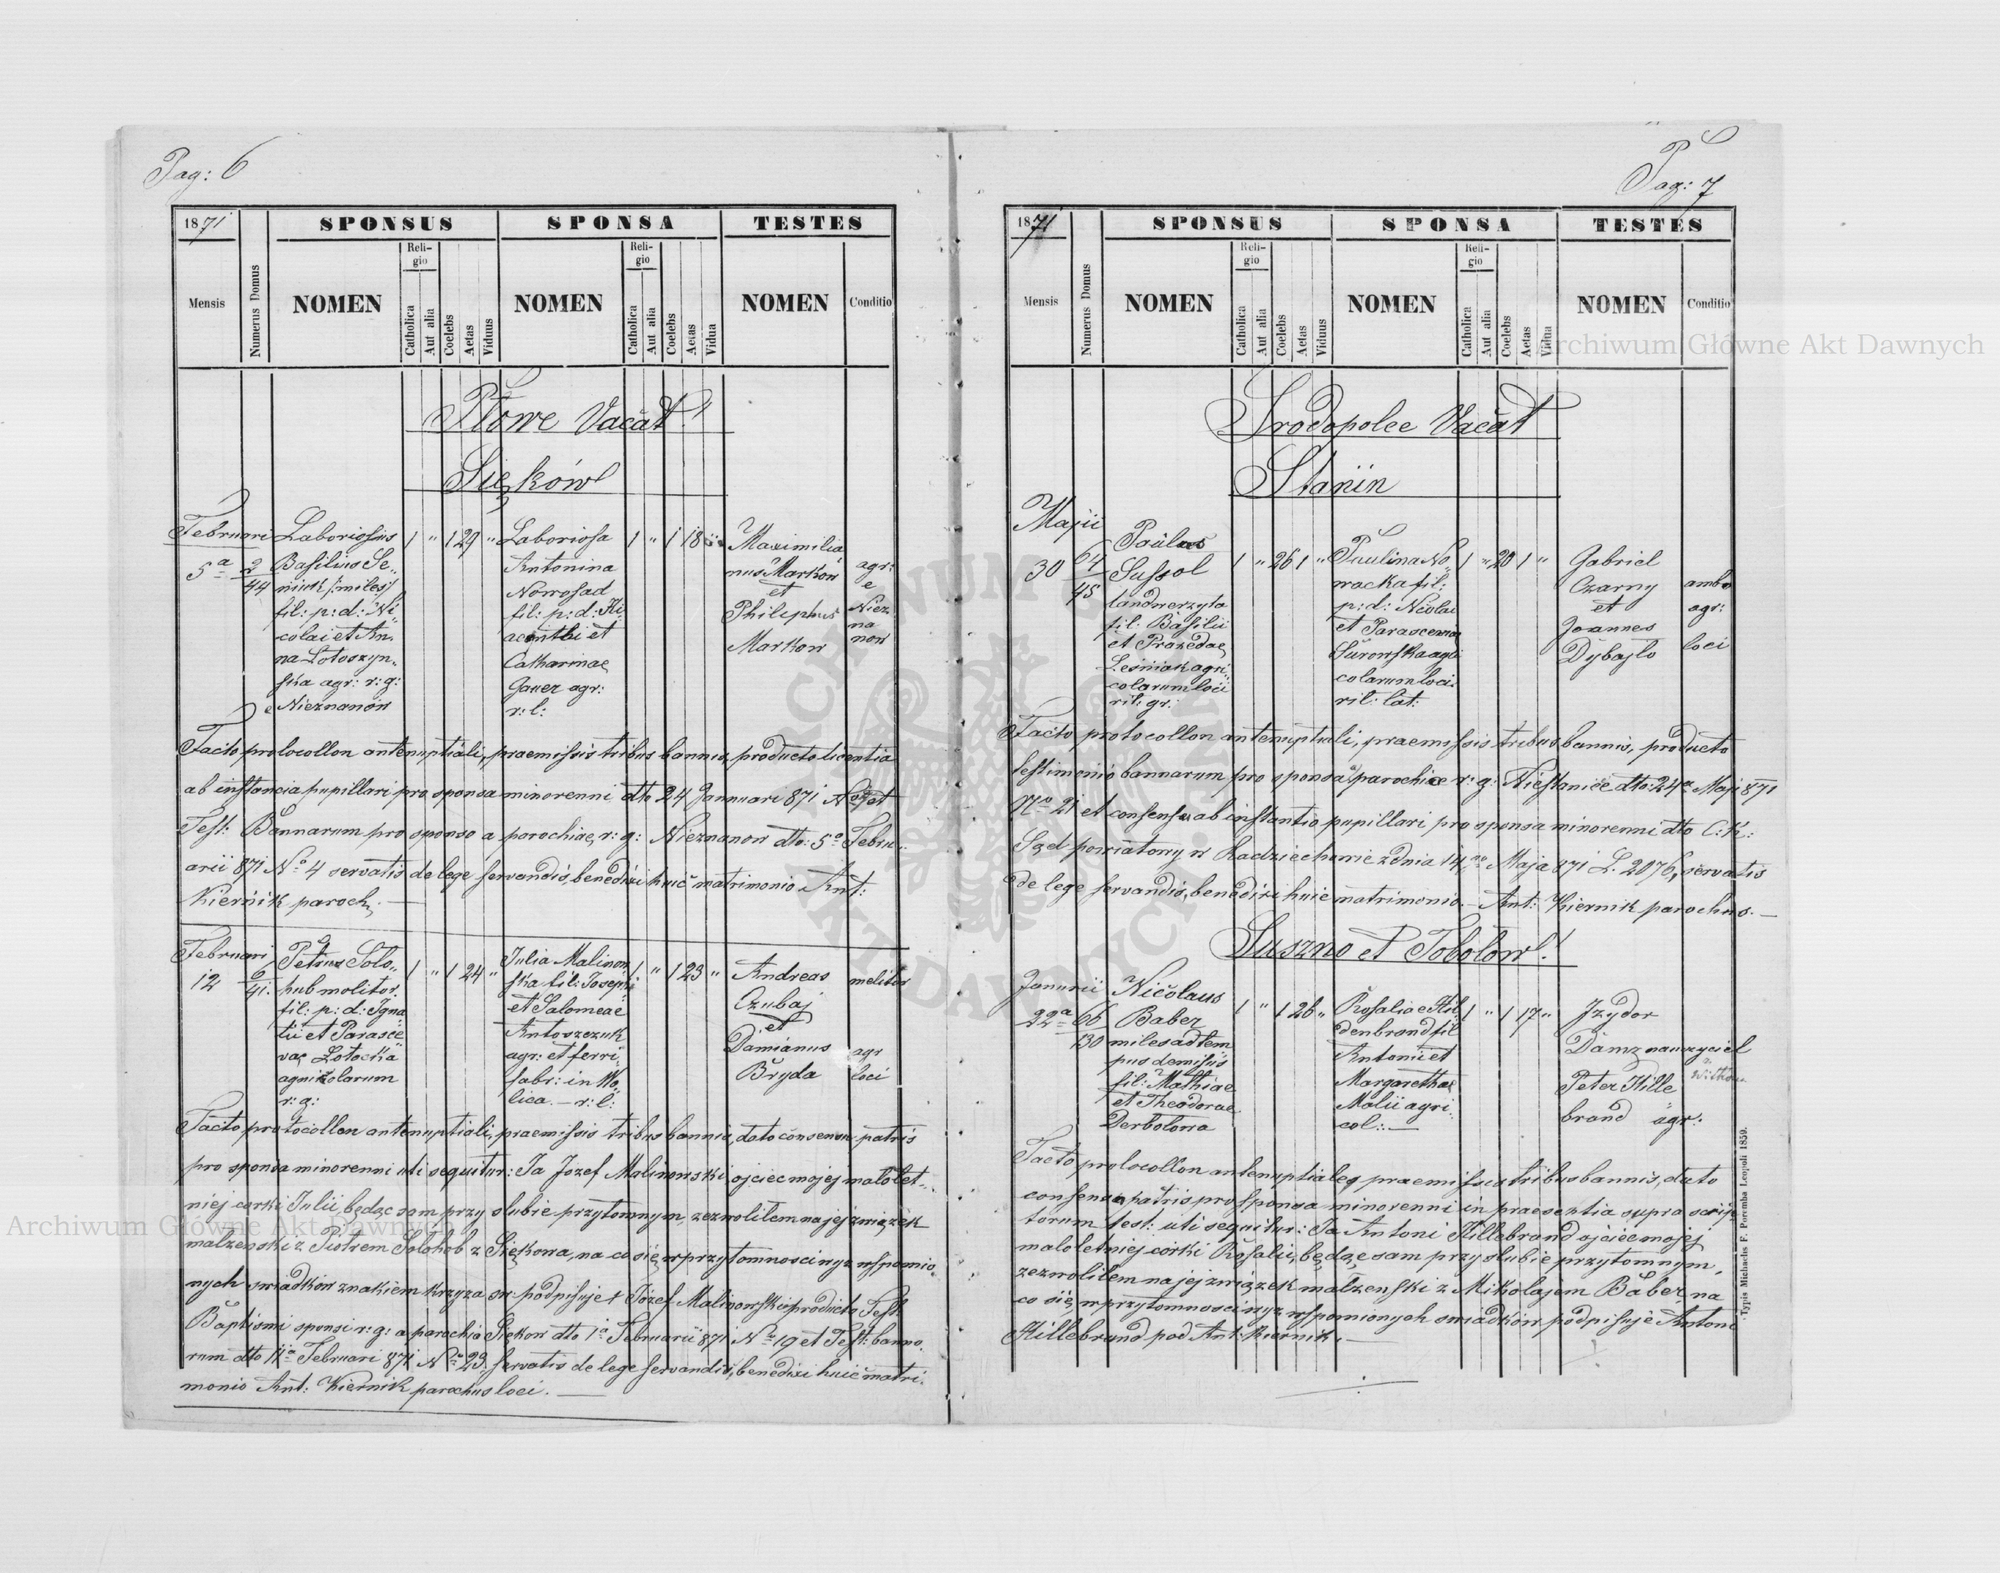 Pag: 6
1871
SPONSUS
SPONSA
TESTES
Mensis
Numerus Domus
NOMEN
Religio
Catholica
Aut alia
Coelebs
Aetas
Viduus
NOMEN
Religio
Catholica
Aut alia
Coelebs
Aetas
Vidua
NOMEN
Conditio
Płowe Vacat!
Sieków
Februari
5a
2
44
Laboriosus
Basilius Se-
niuk /:miles/
fil: p: d: Ni
colai et An
na Lotoszyn-
ska agr: r: g:
e Nieznanów
1 " 1 29 "
Laboriosa
Antonina
Nowosad
fil: p: d: Hi
acinthi et
Catharinae
Gauer agr:
r: l:
1 " 1 18
Maximilia
nus Markow
et
Philiphus
Markow
agr:
e
Niez
na
now
Facto protocollon antenuptiali, praemissis tribus bannis, producto licentia
ab instancia pupillari pro sponsa minorenni dto 24 Januari 871 N et
Test: Bannarum pro sponso a parochiae r: g: Nieznanow dto: 5a Febru-
arii 871 No 4 servatis de lege servandis, benedixi huic matrimonio Ant:
Kiernik paroch; —
Februari
12
6
41.
Petrus Solo-
hub molitor
fil: p: d: Igna
tii et Parasce
vae Lotocka
agricolarum
r: g:
1 " 1 24 "
Julia Malinow
ska fil: Josephi
et Salomeae
Antoszczuk
agr: et ferri
fabr: in Wo
lica. — r: l:
1 " 1 23 "
Andreas
Czubaj
et
Damianus
Bryda
melitor
agr
loci
Facto protocollon antenuptiali, praemissis tribus bannis, dato consensu patris
pro sponsa minorenni uti sequitur: Ja Jozef Malinowski ojciec mojej małolet-
niej corki Julii, będąc sam przy slubie przytomnym, zezwolilem na jej związek
malzenski z Piotrem Solohob z Siękowa, na co się w przytomnosci wyz wspomio
nych swiadków znakiem krzyza sw podpisuje + Józef Malinowski producto Test:
Baptismi sponsi r: g: a parochia Siękow dto 1a Februarii 871 No 19 et Test: banno
rum dto 11a Februari 871 No 23. servatis de lege servandis, benedixi huic matri-
monio Ant: Kiernik parochus loci. —
Pag: 7
1871
SPONSUS
SPONSA
TESTES
Mensis
Numerus Domus
NOMEN
Religio
Catholica
Aut alia
Coelebs
Aetas
Viduus
NOMEN
Religio
Catholica
Aut alia
Coelebs
Aetas
Vidua
NOMEN
Conditio
Srodopolce Vacat
Stanin
Majii
30
64
45
Paulus
Sussol
landwerzysta
fil: Basilii
et Praxedae
Lesniak agri
colarum loci
rit: gr:
1 " 26 1 "
Paulina No
wacka fil:
p: d: Nicolai
et Parascewia
Surowska agri
colarum loci
rit: lat:
1 " 20 1 "
Gabriel
Czarny
et
Joannes
Dybajlo
ambo
agr:
loci
Facto protocollon antenuptiali, praemissis tribus bannis, producto
testimonio bannarum pro sponsa parochiae r: g: Niestanice dto: 24a Maji 871
No 21 et consensu ab instantia pupillari pro sponsa minorenni dto C: K:
Sąd powiatowy w Radziechowie z dnia 14 Maja 871 L. 2076, servatis
de lege servandis, benedixi huic matrimonio. — Ant: Kiernik parochus. —
Suszno et Tobolow!
Januarii
22a
66
130
Nicolaus
Baber
miles ad tem
pus demissus
fil: Mathiae
et Theodorae
Derbotowa
1 " 1 26 "
Rosalia e Hil
denbrand fil:
Antonii et
Margarethae
Malii agri
col: —
1 " 1 17 "
Izydor
Damz nauczyciel
Peter Hille
brand agr:
Facto protocollon antenuptiale, praemissis tribus bannis, dato
consensu patris pro sponsa minorenni in praesentia supra scrip
torum test: uti sequitur: Ja Antoni Hillebrand ojciec mojej
maloletniej córki Rosalii, będąc sam przy slubie przytomnym,
zezwolilem na jej związek malzenski z Mikolajem Baber, na
co się w przytomnosci wyz wspomionych swiadków podpisuje Antoni
Hillebrand pod Ant: Kiernik. —
Typis Michaelis F. Poremba Leopoli 1859.
Archiwum Główne Akt Dawnych
Archiwum Główne Akt Dawnych